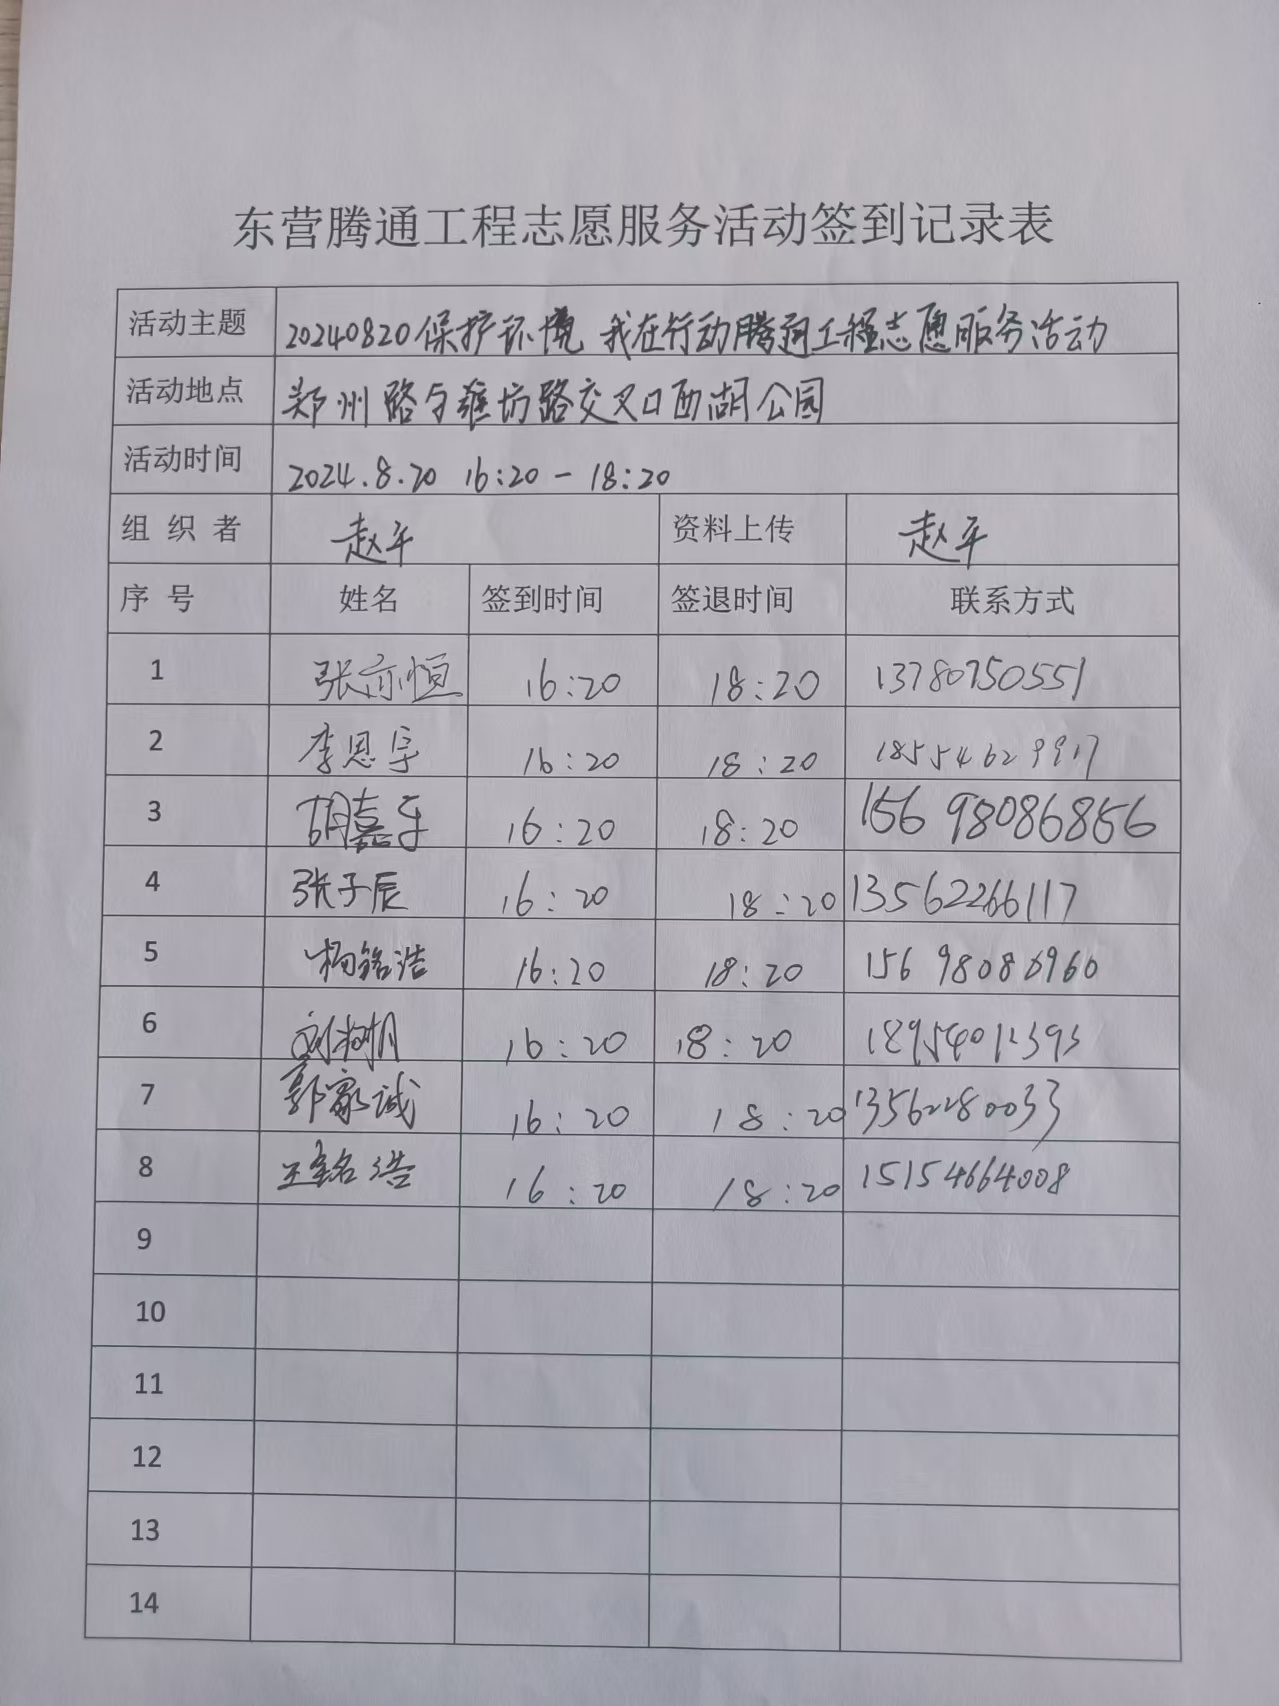 东营腾通工程志愿服务活动签到记录表
活动主题 20240820保护环境 我在行动腾通工程志愿服务活动
活动地点 郑州路与潍坊路交叉口西湖公园
活动时间 2024.8.20 16:20-18:20
组织者 赵平 资料上传 赵平
序号 姓名 签到时间 签退时间 联系方式
1 张亦恒 16:20 18:20 13780750551
2 李思宇 16:20 18:20 18554629917
3 胡嘉乐 16:20 18:20 15698086856
4 张子辰 16:20 18:20 13562266117
5 杨铭浩 16:20 18:20 15698080960
6 16:20 18:20 18954012393
7 郭家诚 16:20 18:20 13562280033
8 王铭浩 16:20 18:20 15154664008
9
10
11
12
13
14